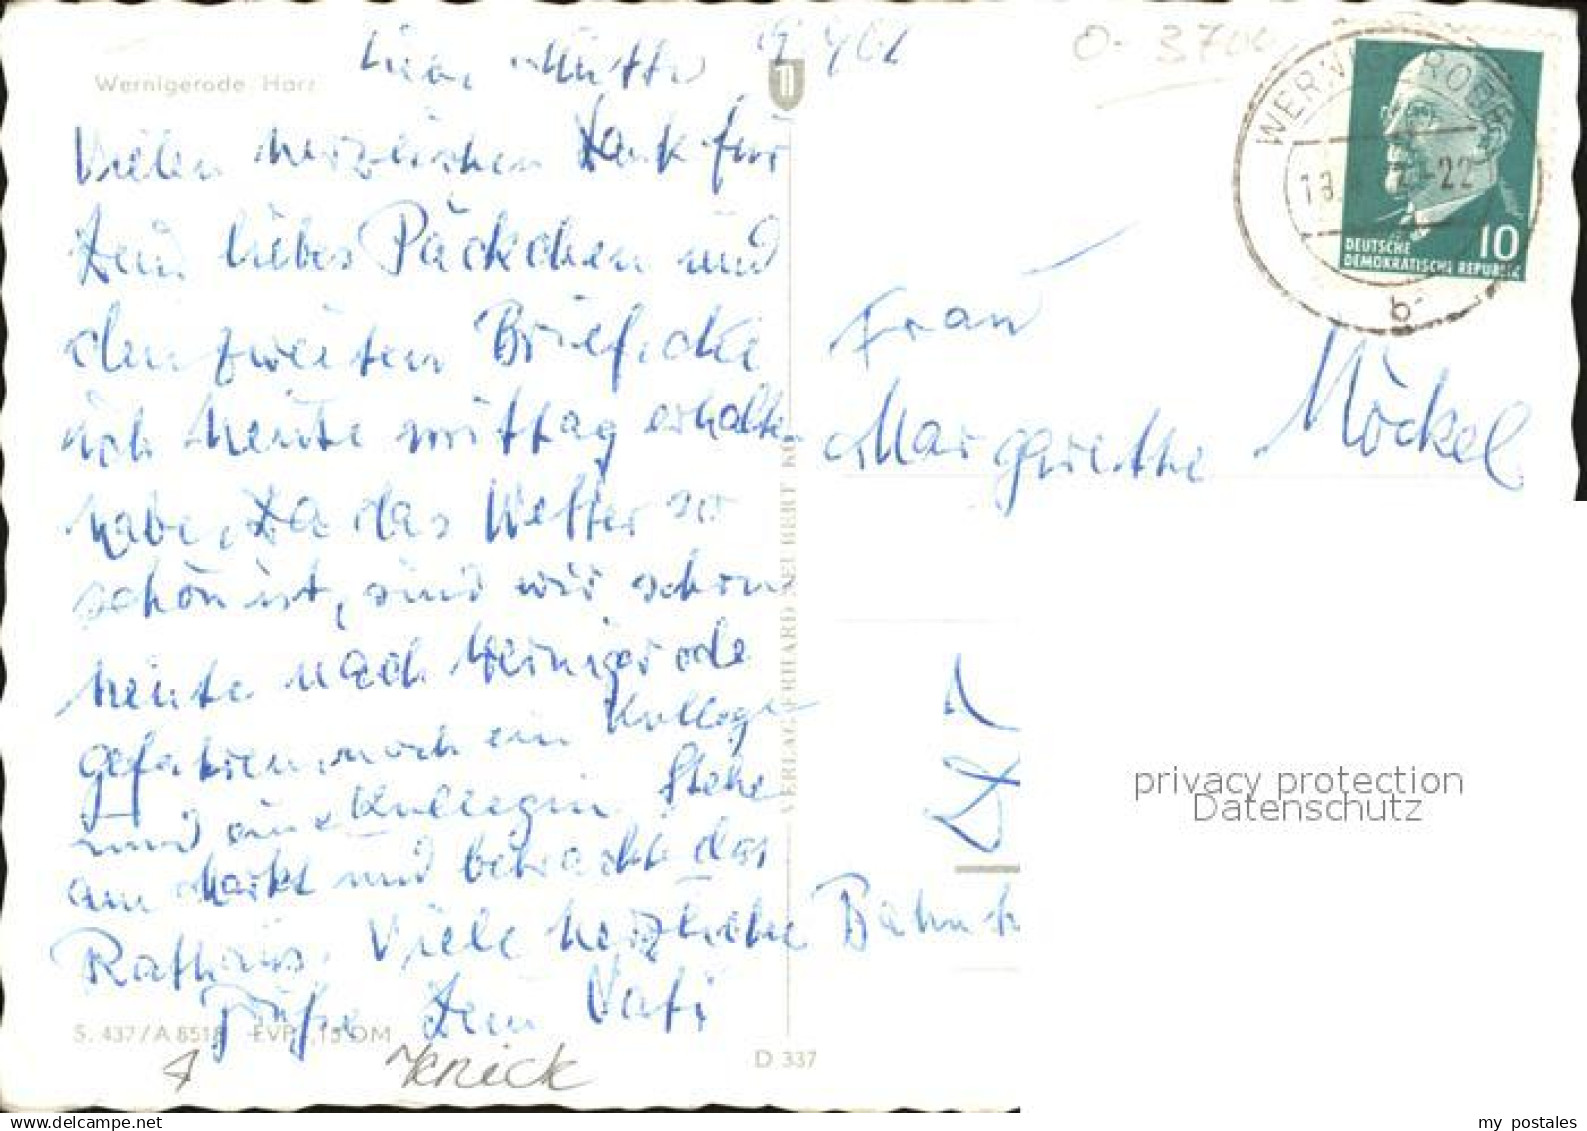 Wernigerode Harz
Liebe Mutti
Vielen herzlichen Dank für
Dein liebes Päckchen und
den zweiten Brief, die
ich heute mittag erhalten
habe. Da das Wetter so
schön ist, sind wir schon
heute nach Wernigerode
gefahren, noch ein Kollege
und eine Kollegin. Stehe
am Markt und betrachte das
Rathaus. Viele herzliche
Grüße Dein Vati
S. 437/A 8518 EVP
D 337
VERLAG ERHARD NEUBERT KG
O- 3700
WERNIGERODE
22
b
10
DEUTSCHE
DEMOKRATISCHE REPUBLIK
Frau
Margarethe Möckel
Bahnh
privacy protection
Datenschutz
my postales